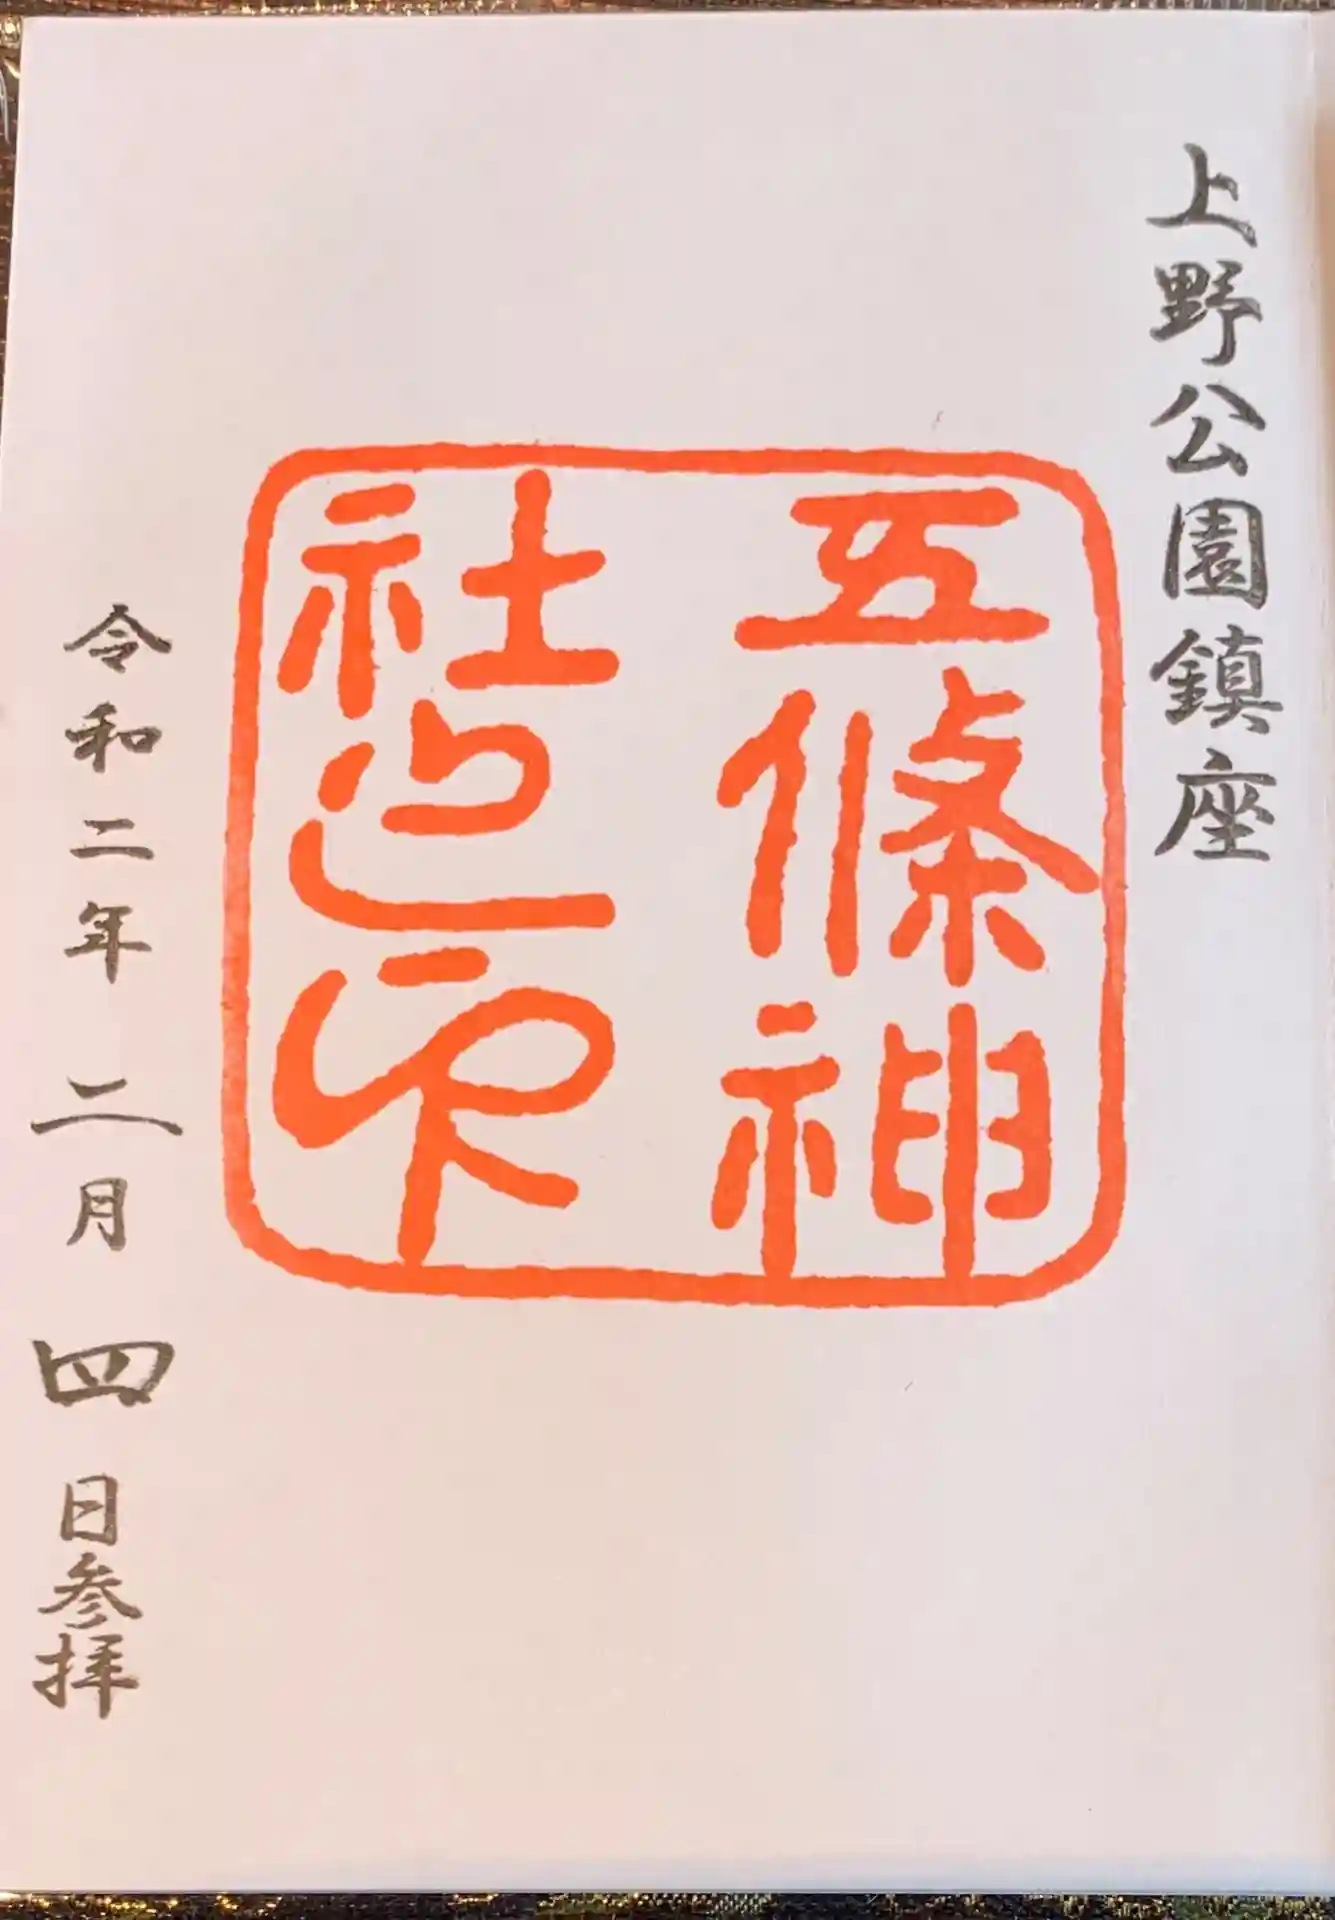 上野公園鎮座
五條神
社之印
令和二年二月四日参拝